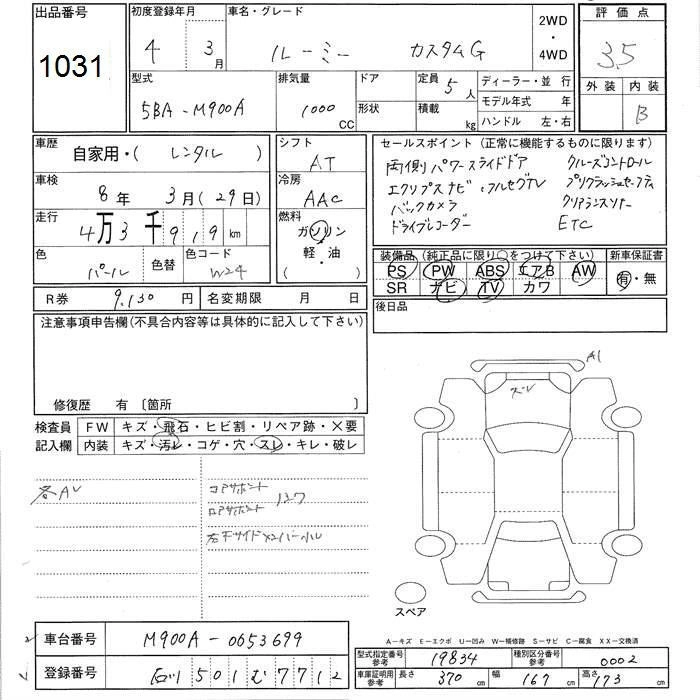 出品番号 1031
初度登録年月 4 3月
車名・グレード ルーミー カスタムG
2WD・4WD
評価点 3.5
外装 内装 B
型式 5BA-M900A
排気量 1000 CC
ドア
形状
定員 5人
積載 kg
ディーラー・並 行
モデル年式 年
ハンドル 左・右
車歴 自家用・( レンタル )
車検 8年 3月(29日)
走行 4万3千919km
色 パール
色替
色コード W24
シフト AT
冷房 AAC
燃料 ガソリン
軽・油
( )
セールスポイント(正常に機能するものに限ります)
両側パワースライドドア クルーズコントロール
エクリプスナビ・フルセグTV プリクラッシュセーフティ
バックカメラ クリアランスソナー
ドライブレコーダー ETC
装備品(純正品に限り○をつけて下さい)
PS PW ABS エアB AW
SR ナビ TV カワ
新車保証書
有・無
R券 9,130円
名変期限 月 日
後日品
注意事項申告欄(不具合内容等は具体的に記入して下さい)
修復歴 有〔箇所 〕
検査員記入欄
FW キズ・飛石・ヒビ割・リペア跡・×要
内装 キズ・汚レ・コゲ・穴・スレ・キレ・破レ
各AU
コアサポート
ロアサポート
A1
ズレ
スペア
A－キズ E－エクボ U－凹み W－補修跡 S－サビ C－腐食 XX－交換済
車台番号 M900A-0653699
登録番号 石川 501 む 7712
型式指定番号参考 19834
種別区分番号参考 0002
車庫証明用参考 長さ 370cm 幅 167cm 高さ 173cm